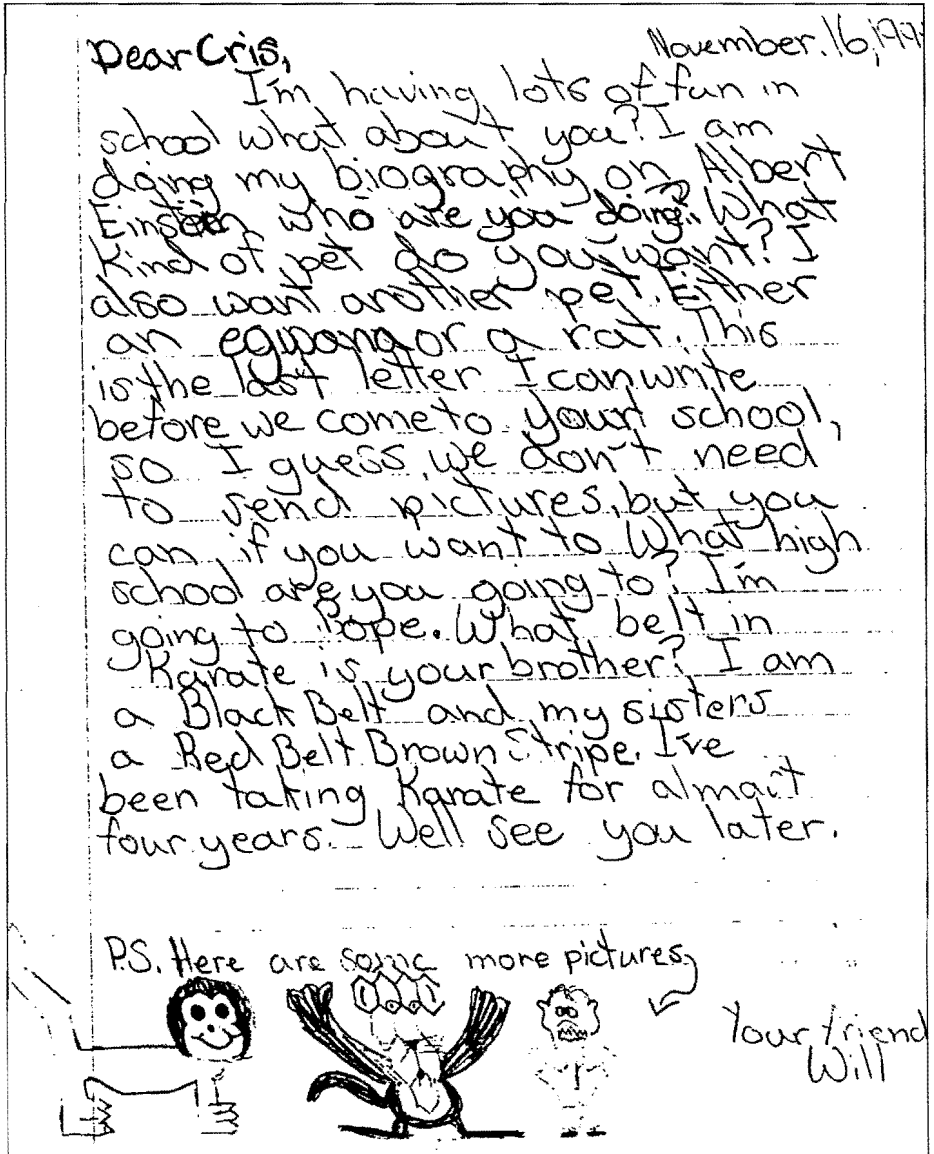 Dear Cris, November. 16, 199
I'm having lots of fun in
school what about you? I am
doing my biography on Albert
Einstein who are you doing? What
Kind of pet do you want? I
also want another pet. Either
an egwana or a rat. This
is the last letter I can write
before we come to your school,
so I guess we don't need
to send pictures, but you
can if you want to What high
school are you going to? I'm
going to Pope. What belt in
Karate is your brother? I am
a Black Belt and my sisters
a Red Belt Brown Stripe. I've
been taking Karate for almost
four years. Well see you later.
P.S. Here are some more pictures
Your friend
Will